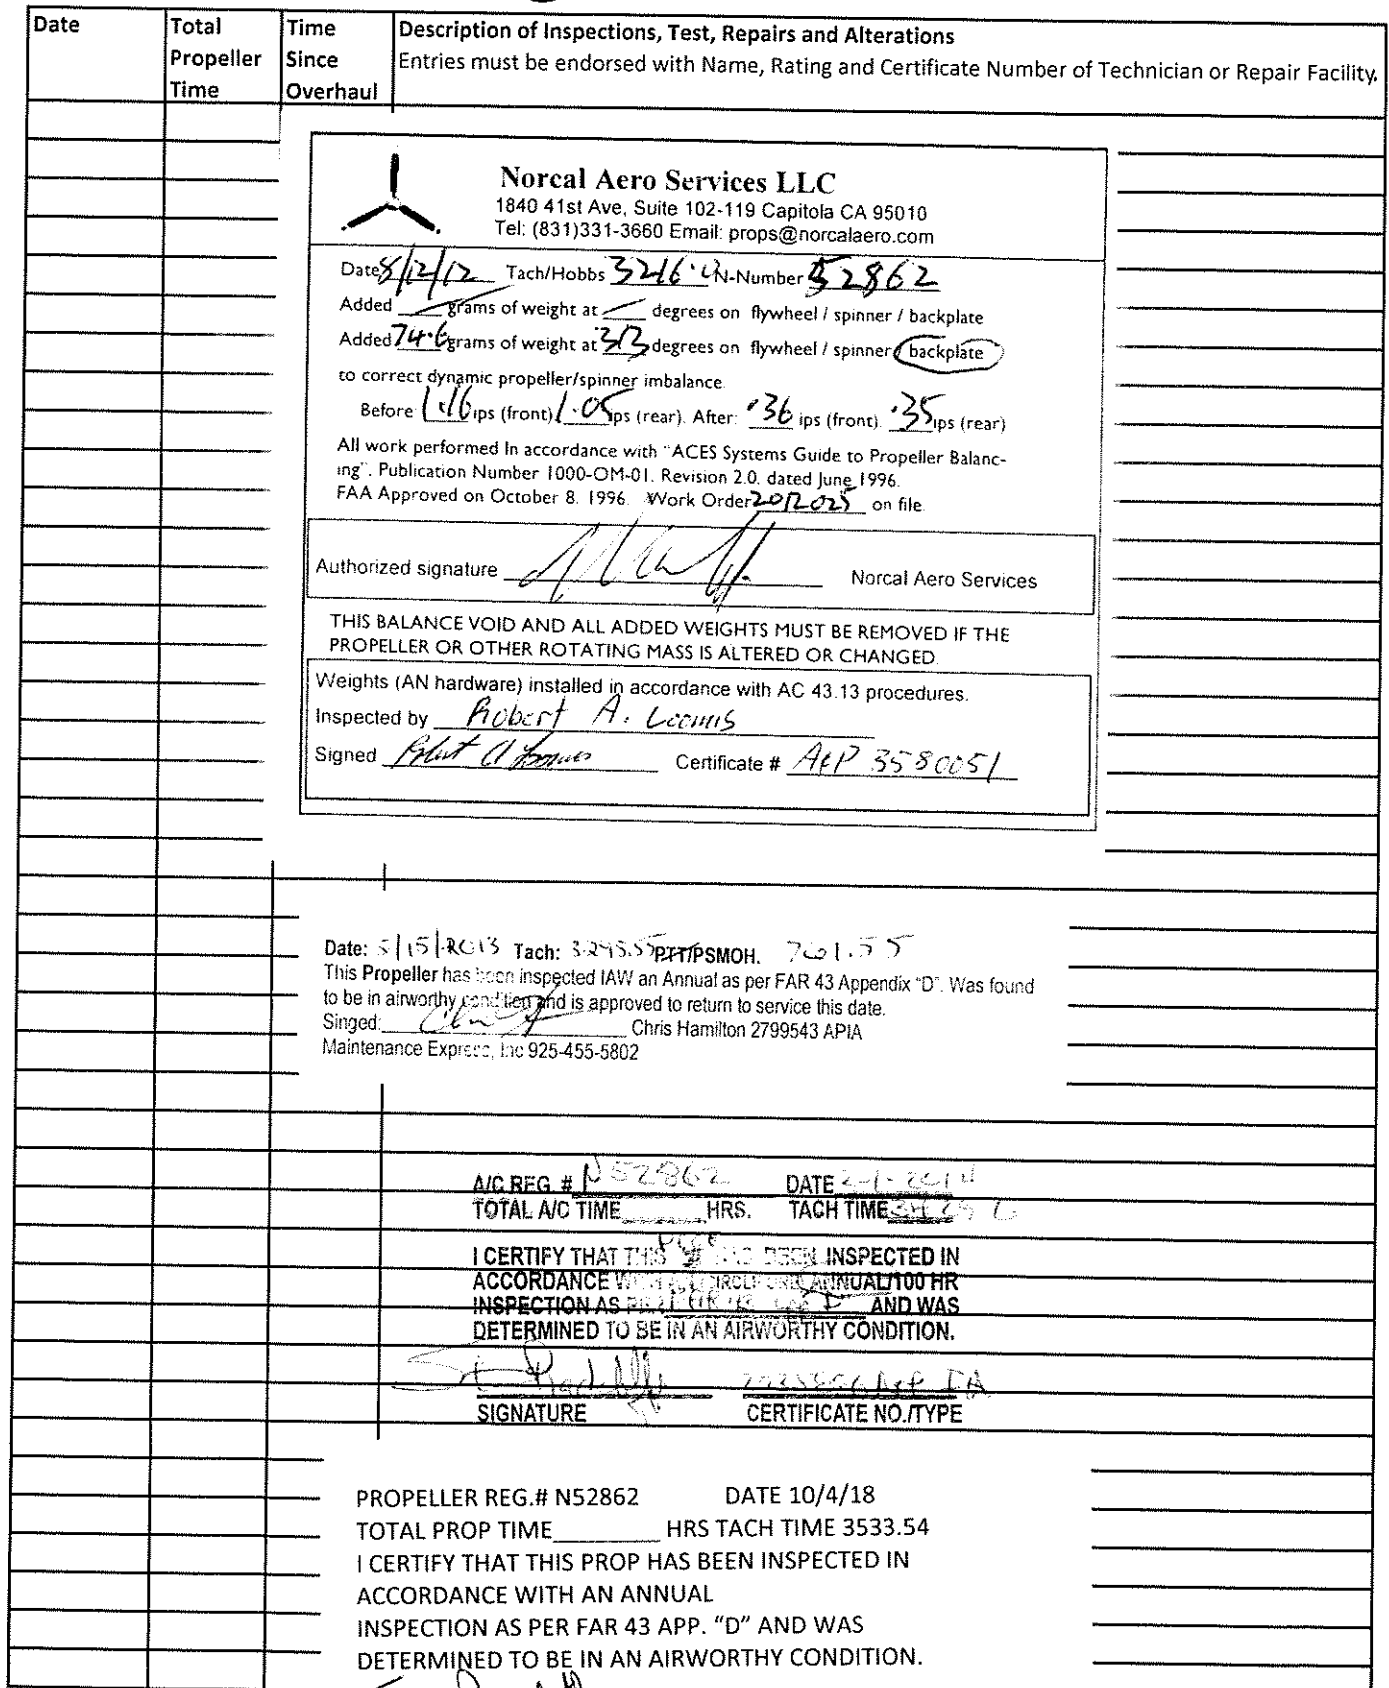 Date Total Propeller Time Time Since Overhaul Description of Inspections, Test, Repairs and Alterations
Entries must be endorsed with Name, Rating and Certificate Number of Technician or Repair Facility.
Norcal Aero Services LLC
1840 41st Ave, Suite 102-119 Capitola CA 95010
Tel: (831)331-3660 Email: props@norcalaero.com
Date 8/12/12 Tach/Hobbs N-Number 52862
Added grams of weight at degrees on flywheel / spinner / backplate
Added 74.6 grams of weight at 313 degrees on flywheel / spinner / backplate
to correct dynamic propeller/spinner imbalance.
Before: 1.16 ips (front) 1.05 ips (rear). After: .36 ips (front). .35 ips (rear)
All work performed In accordance with "ACES Systems Guide to Propeller Balanc-
ing". Publication Number 1000-OM-01. Revision 2.0. dated June 1996.
FAA Approved on October 8. 1996. Work Order 2012025 on file.
Authorized signature Norcal Aero Services
THIS BALANCE VOID AND ALL ADDED WEIGHTS MUST BE REMOVED IF THE
PROPELLER OR OTHER ROTATING MASS IS ALTERED OR CHANGED.
Weights (AN hardware) installed in accordance with AC 43.13 procedures.
Inspected by Robert A. Loomis
Signed Robert A Loomis Certificate # A&P 3580051
Date: 5/15/2013 Tach: 3295.55 PTT/PSMOH. 761.55
This Propeller has been inspected IAW an Annual as per FAR 43 Appendix "D". Was found
to be in airworthy condition and is approved to return to service this date.
Singed: Chris Hamilton 2799543 APIA
Maintenance Express, Inc 925-455-5802
A/C REG. # N52862 DATE 2-1-2014
TOTAL A/C TIME HRS. TACH TIME
I CERTIFY THAT THIS HAS BEEN INSPECTED IN
ACCORDANCE WITH ANNUAL/100 HR
INSPECTION AS PER AND WAS
DETERMINED TO BE IN AN AIRWORTHY CONDITION.
A&P IA
SIGNATURE CERTIFICATE NO./TYPE
PROPELLER REG.# N52862 DATE 10/4/18
TOTAL PROP TIME HRS TACH TIME 3533.54
I CERTIFY THAT THIS PROP HAS BEEN INSPECTED IN
ACCORDANCE WITH AN ANNUAL
INSPECTION AS PER FAR 43 APP. "D" AND WAS
DETERMINED TO BE IN AN AIRWORTHY CONDITION.